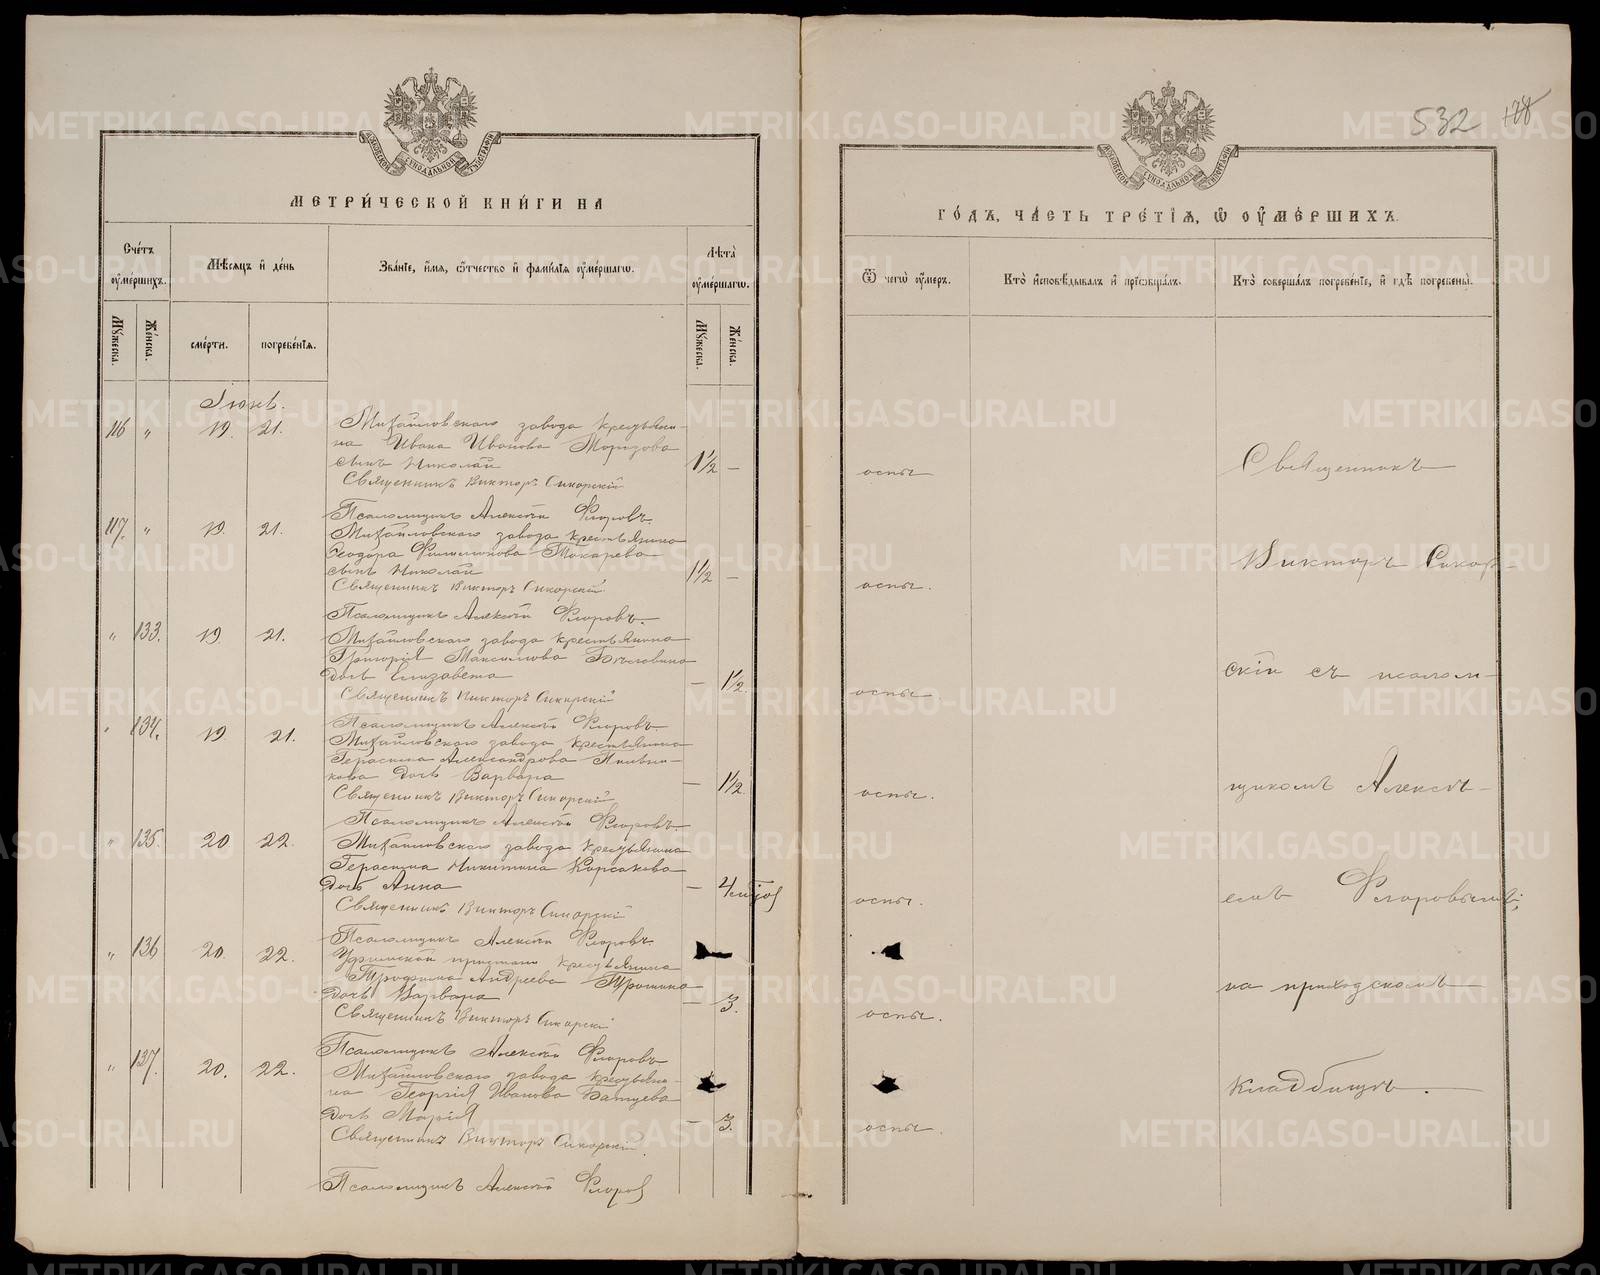 МЕТРИ́ЧЕСКОЙ КНИ́ГИ НА
Счéтъ оу҆мéршихъ.
Мѣ́сяцъ и҆ дéнь
Звáнїе, и҆́мя, ѻ҆́тчество и҆ фамѝлїя оу҆мéршагѡ.
Лѣ́та оу҆мéршагѡ.
Мꙋ́жеска.
Жéнска.
смéрти.
погребéнїя.
Мꙋ́жеска.
Жéнска.
Іюнь.
116 " 19. 21. Михайловскаго завода крестьяни-
на Ивана Иванова Морозова
сынъ Николай 1½ —
Священникъ Викторъ Сикорскій
Псаломщикъ Алексѣй Флоровъ.
117. " 19. 21. Михайловскаго завода крестьянина
Ѳеодора Филимонова Токарева
сынъ Николай 1½ —
Священникъ Викторъ Сикорскій
Псаломщикъ Алексѣй Флоровъ.
" 133. 19. 21. Михайловскаго завода крестьянина
Григорія Максимова
дочь Елизавета — 1½.
Священникъ Викторъ Сикорскій
Псаломщикъ Алексѣй Флоровъ.
" 134. 19. 21. Михайловскаго завода крестьянина
Герасима Александрова
дочь Варвара — 1½.
Священникъ Викторъ Сикорскій
Псаломщикъ Алексѣй Флоровъ.
" 135. 20. 22. Михайловскаго завода крестьянина
Герасима Никитина Корсакова
дочь Анна — 4
Священникъ Викторъ Сикорскій
Псаломщикъ Алексѣй Флоровъ.
" 136 20. 22. Уфимской пристани крестьянина
Трофима Андреева Трошина
дочь Варвара — 3.
Священникъ Викторъ Сикорскій
Псаломщикъ Алексѣй Флоровъ
" 137. 20. 22. Михайловскаго завода крестьяни-
на Георгія Иванова
дочь Марія — 3.
Священникъ Викторъ Сикорскій.
Псаломщикъ Алексѣй Флоровъ
532 178
ГО́ДЪ, ЧА́СТЬ ТРÉТЇЯ, Ѡ҆ ОУ҆МÉРШИХЪ.
Ѿ чегѡ̀ оу҆́меръ.
Ктò и҆сповѣ́дывалъ и҆ прїѡбщáлъ.
Ктò совершáлъ погребéнїе, и҆ гдѣ̀ погребены̀.
оспы
оспы.
оспы
оспы.
оспы.
оспы.
оспы.
Священникъ
Викторъ Сикор-
скій съ псалом-
щикомъ Алексѣ-
емъ Флоровымъ;
на приходскомъ
кладбищѣ.